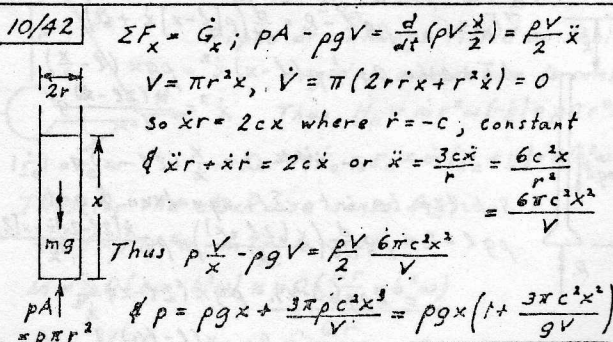 10/42
ΣFₓ = Ġₓ; pA - ρgV = d/dt (ρV ẋ/2) = ρV/2 ẍ
V = πr²x, V̇ = π(2rṙx + r²ẋ) = 0
so ẋr = 2cx where ṙ = -c, constant
& ẍr + ẋṙ = 2cẋ or ẍ = 3cẋ/r = 6c²x/r²
= 6πc²x²/V
Thus p V/x - ρgV = ρV/2 6πc²x²/V
& p = ρgx + 3πρc²x³/V = ρgx(1 + 3πc²x²/gV)
2r
x
mg
pA
= pπr²